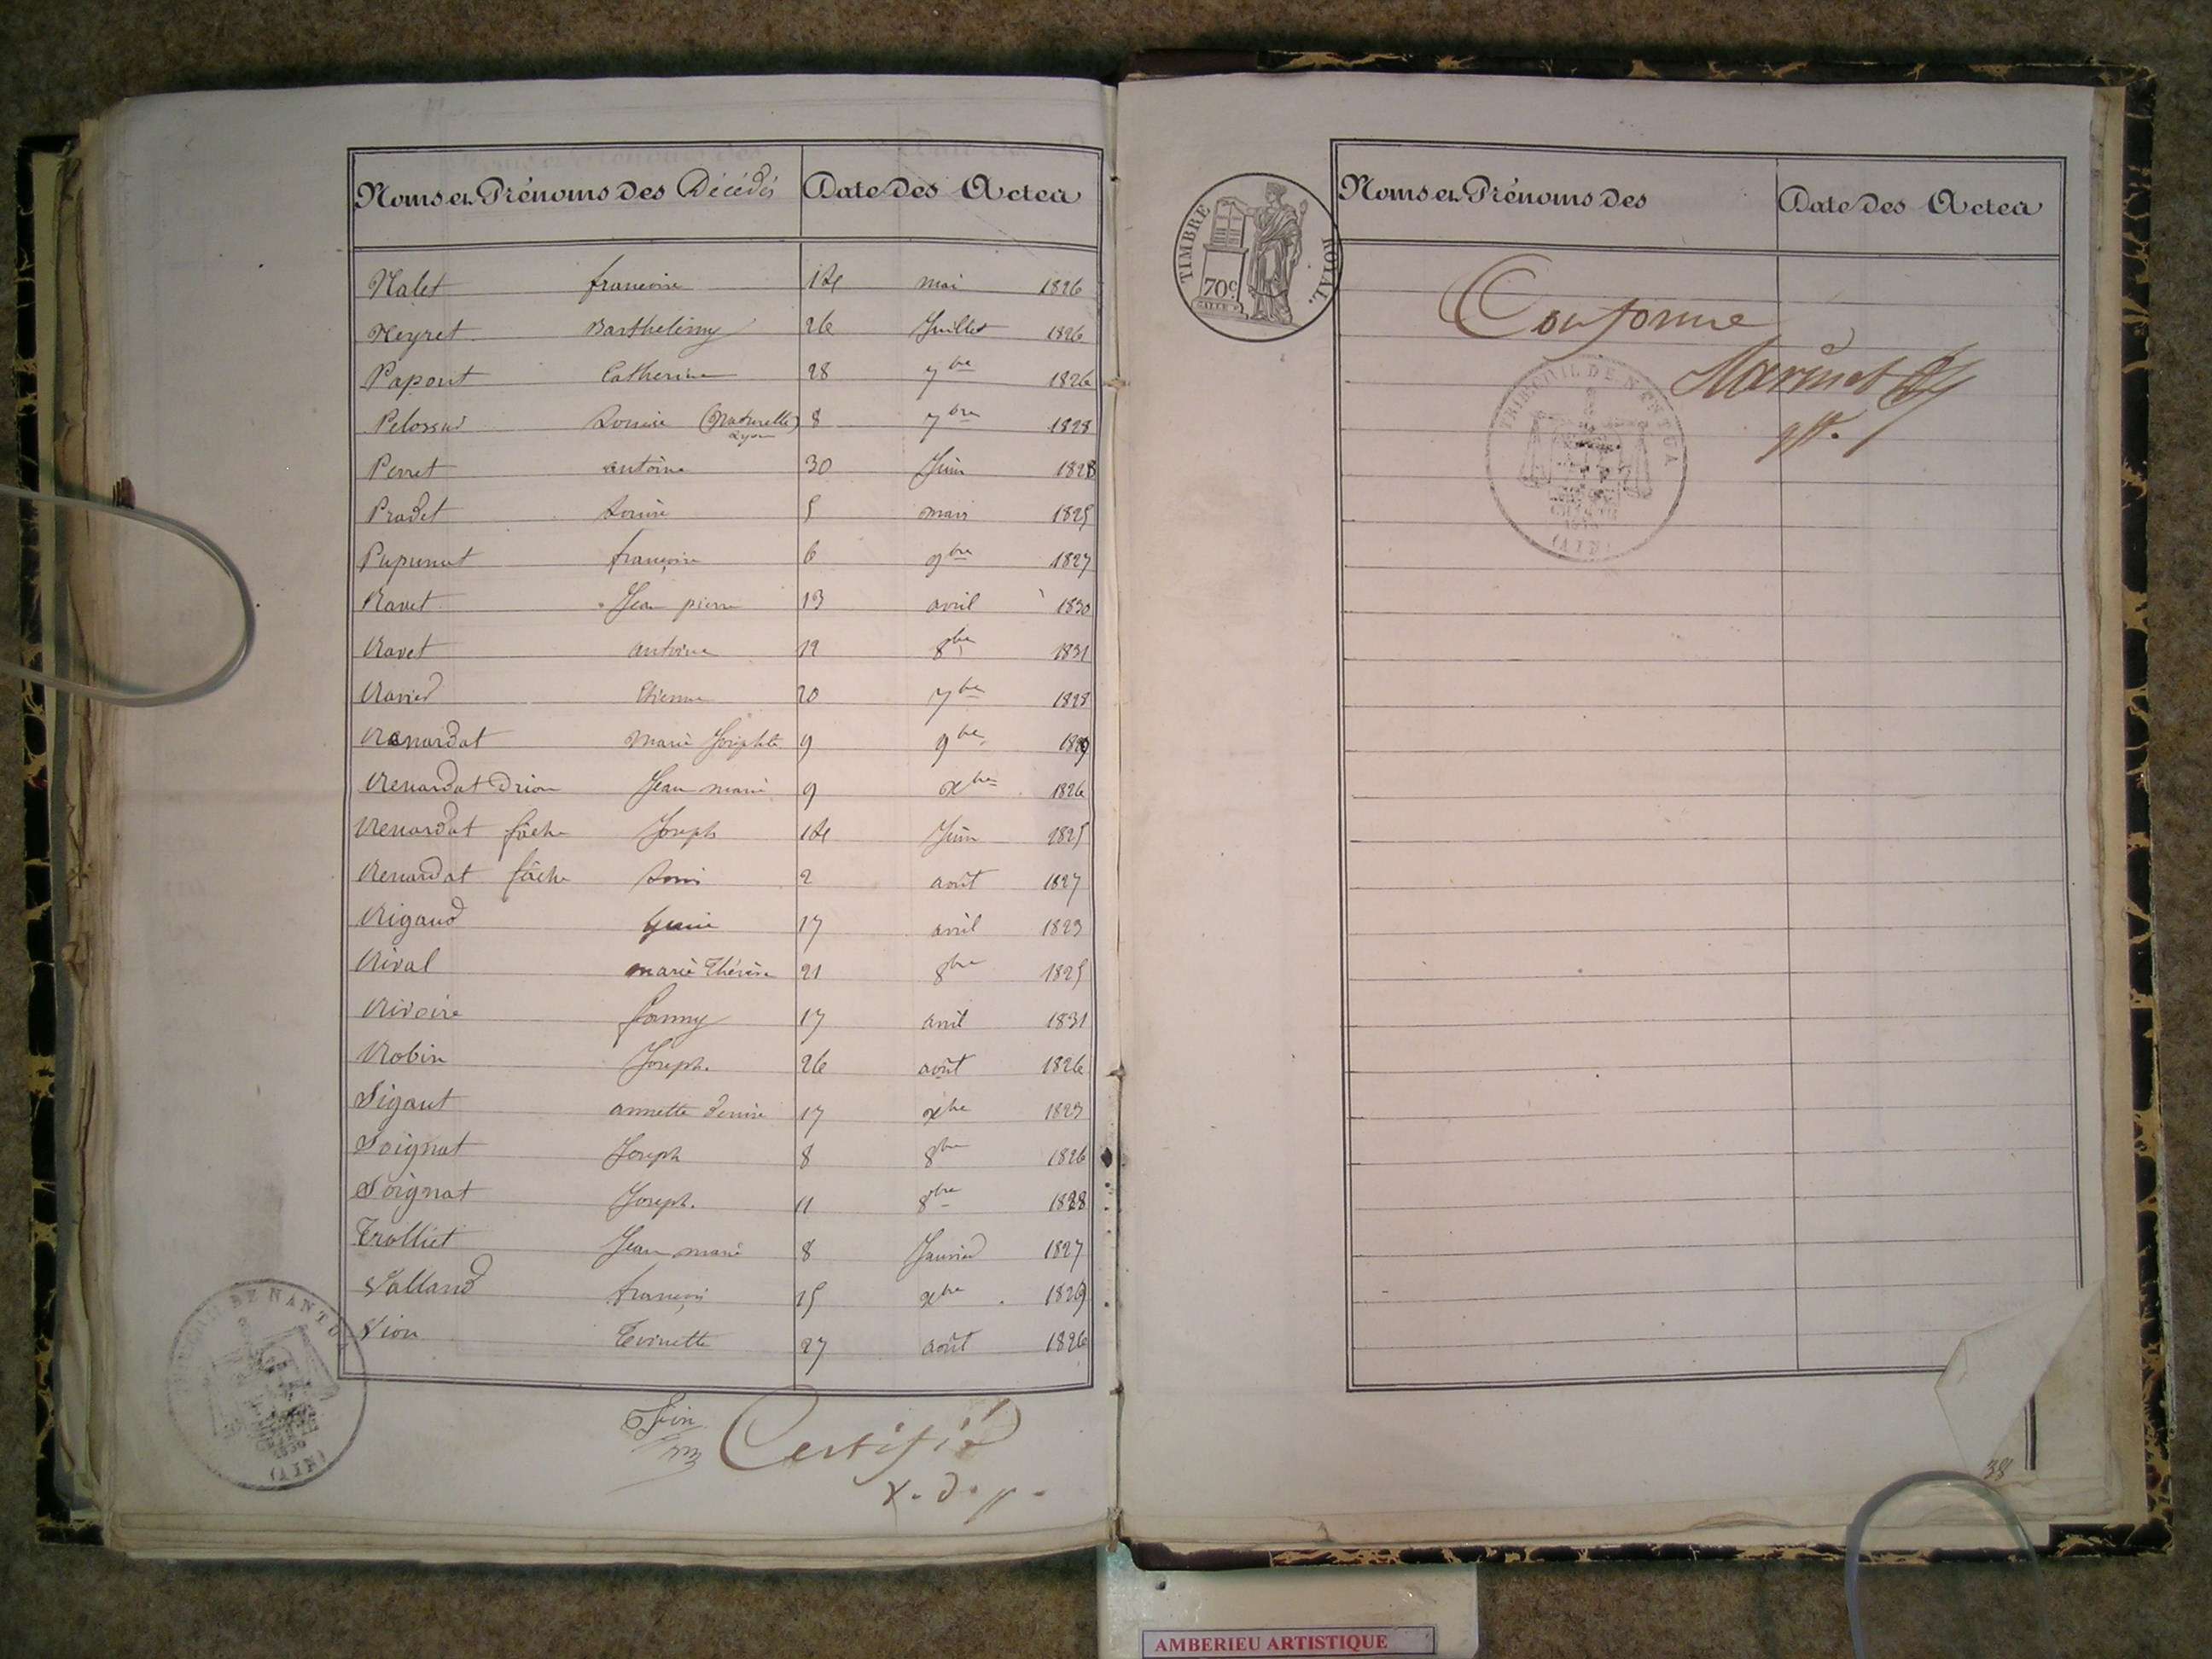 Noms et Prénoms des Décédés Date des Actes
Nalet françoise 14 mai 1826
Neyret Barthelémy 26 Juillet 1826
Papont Catherine 28 7bre 1826
Louise (Naturelle) 8 7bre 1828
Lyon
Perret antoine 30 Juin 1828
Pradet Louise 5 mars 1825
Pupunat françoise 6 9bre 1827
Ravet Jean pierre 13 avril 1830
Ravet antoine 19 8bre 1831
Ravier Etienne 20 7bre 1828
Renardat marie Josephte 9 9bre
Renardat Drion Jean marie 9 Xbre 1826
Renardat fâche Joseph 14 Juin 1825
Renardat fâche Louis 2 août 1827
Rigaud 17 avril 1823
Rival marie Thérèse 21 8bre 1825
Rivoire fanny 17 avril 1831
Robin Joseph. 26 août 1826
Sigaut annette denise 17 xbre 1823
Soignat Joseph 8 8bre 1826
Soignat Joseph. 11 8bre 1828
Trolliet Jean marie 8 Janvier 1827
Valland françois 15 xbre 1829
Vion Tvinette 27 août 1826
Certifié
TRIBUNAL DE NANTUA
(AIN)
TIMBRE ROYAL.
70c
Noms et Prénoms des Date des Actes
Conforme
TRIBUNAL DE NANTUA
(AIN)
38
AMBERIEU ARTISTIQUE